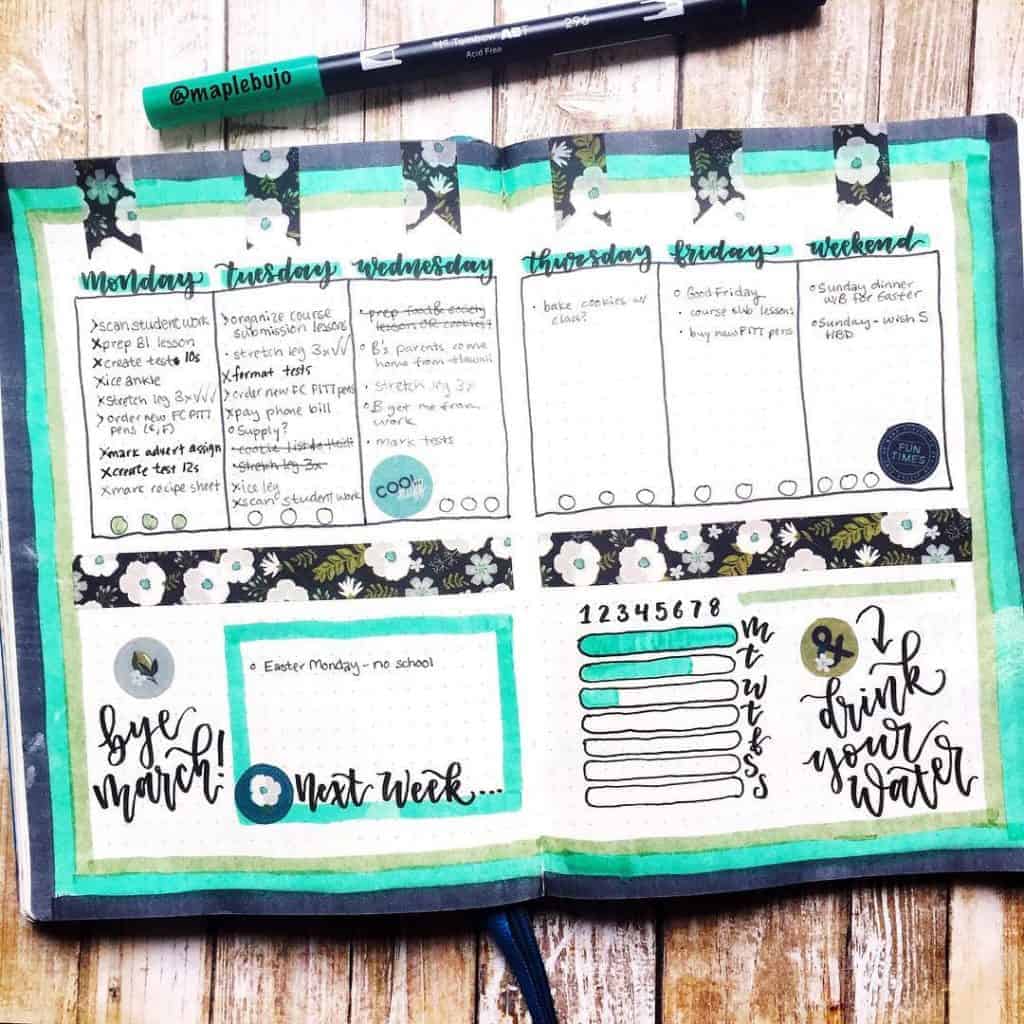 @maplebujo
Tombow ABT
Acid Free
296
monday
>scan student work
xprep BI lesson
xcreate test 10s
xice ankle
xstretch leg 3x✓✓✓
>order new FC PITT
pens (S, F)
xmark advert assign
xcreate test 12s
xmark recipe sheet
tuesday
>organize course
submission lessons
• stretch leg 3x✓✓
xformat tests
>order new FC PITT pens
xpay phone bill
o Supply?
• stretch leg 3x
xice leg
xscan student work
wednesday
• prep food & society
lesson OR cookies?
o B's parents come
home from Hawaii
• stretch leg 3x
o B get me from
work
• mark tests
COOL
thursday
• bake cookies w/
class?
friday
o Good Friday
• course sub lessons
• buy new PITT pens
weekend
o Sunday dinner
w/B for Easter
o Sunday - wish S
HBD
FUN
TIMES
bye
march!
o Easter Monday - no school
Next Week...
1 2 3 4 5 6 7 8
m
t
w
t
f
s
s
&
drink
your
water